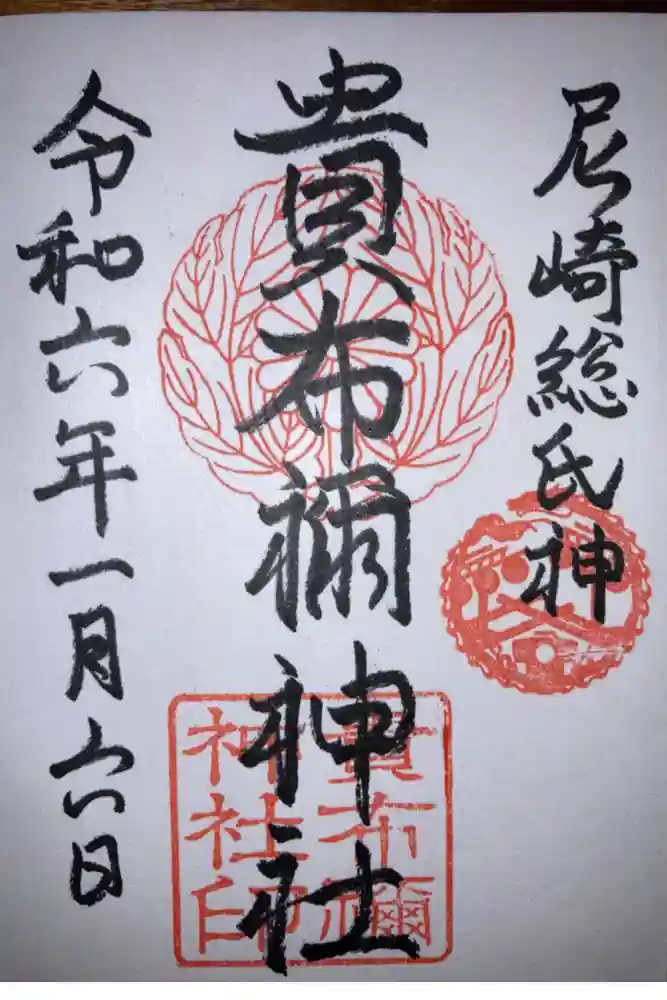 尼崎総氏神
貴布禰神社
貴布禰
神社印
令和六年一月六日